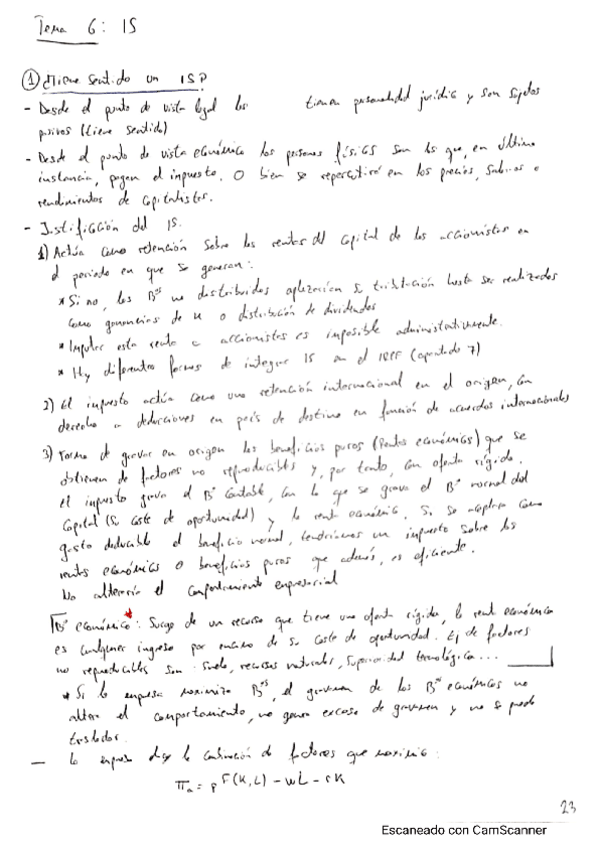 Tema 6: IS
① ¿Tiene sentido un IS?
- Desde el punto de vista legal las tienen personalidad jurídica y son sujetos
pasivos (tiene sentido)
- Desde el punto de vista económico las personas físicas son las que, en última
instancia, pagan el impuesto, o bien se repercutirá en los precios, salarios o
rendimientos de capitalistas.
- Justificación del IS.
1) Actúa como retención sobre las rentas del capital de los accionistas en
el periodo en que se generan:
* Si no, los Bºs no distribuidos aplazarían su tributación hasta ser realizados
como ganancias de K o distribución de dividendos
* Imputar esta renta a accionistas es imposible administrativamente.
* Hay diferentes formas de integrar IS en el IRPF (apartado 7)
2) El impuesto actúa como una retención internacional en el origen, con
derecho a deducciones en país de destino en función de acuerdos internacionales
3) Forma de gravar en origen los beneficios puros (rentas económicas) que se
obtienen de factores no reproducibles y, por tanto, con oferta rígida.
El impuesto grava el Bº contable, con lo que se grava el Bº normal del
capital (su coste de oportunidad) y la renta económica. Si se aceptara como
gasto deducible el beneficio normal, tendríamos un impuesto sobre las
rentas económicas o beneficios puros que además, es eficiente.
No alteraría el comportamiento empresarial
Bº económico*: Surge de un recurso que tiene una oferta rígida, la renta económica
es cualquier ingreso por encima de su coste de oportunidad. Ej de factores
no reproducibles son: suelo, recursos naturales, superioridad tecnológica...
* Si la empresa maximiza Bºs, el gravamen de los Bºs económicos no
altera el comportamiento, no genera exceso de gravamen y no se puede
trasladar.
— La empresa elige la combinación de factores que maximiza:
πₐ = p F(K,L) - wL - rK
23
Escaneado con CamScanner